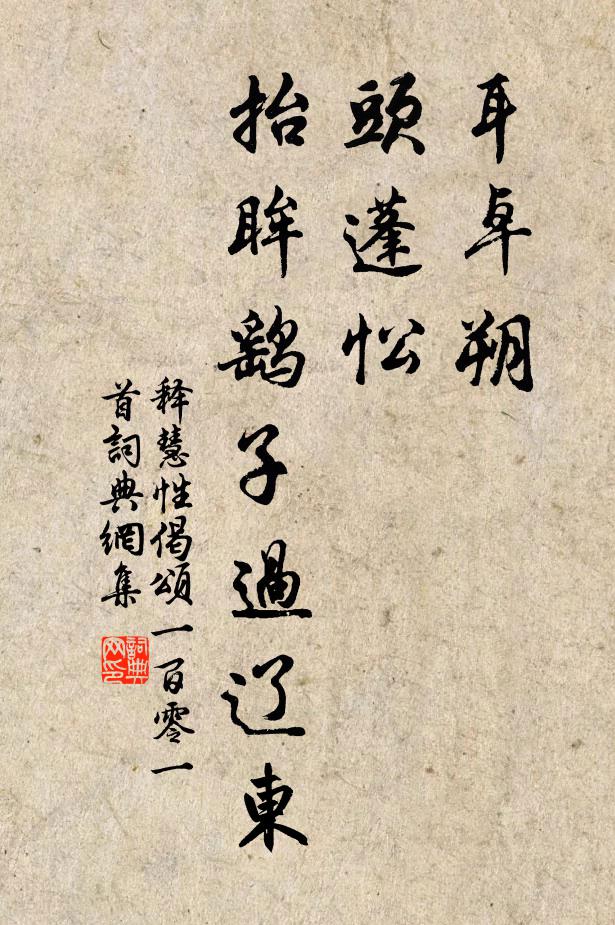 耳卓朔
頭蓬松
抬眸鷂子過辽東
释慧性偈頌一百零一
首詞典網集
詞典网印